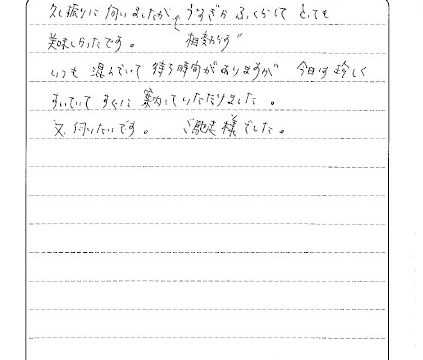 久し振りに伺いましたが、うなぎがふっくらしてとても
美味しかったです。 相変わらず
いつも混んでいて待ち時間がありますが 今日は珍しく
すいていてすぐに案内していただけました。
又、伺いたいです。 ご馳走様でした。